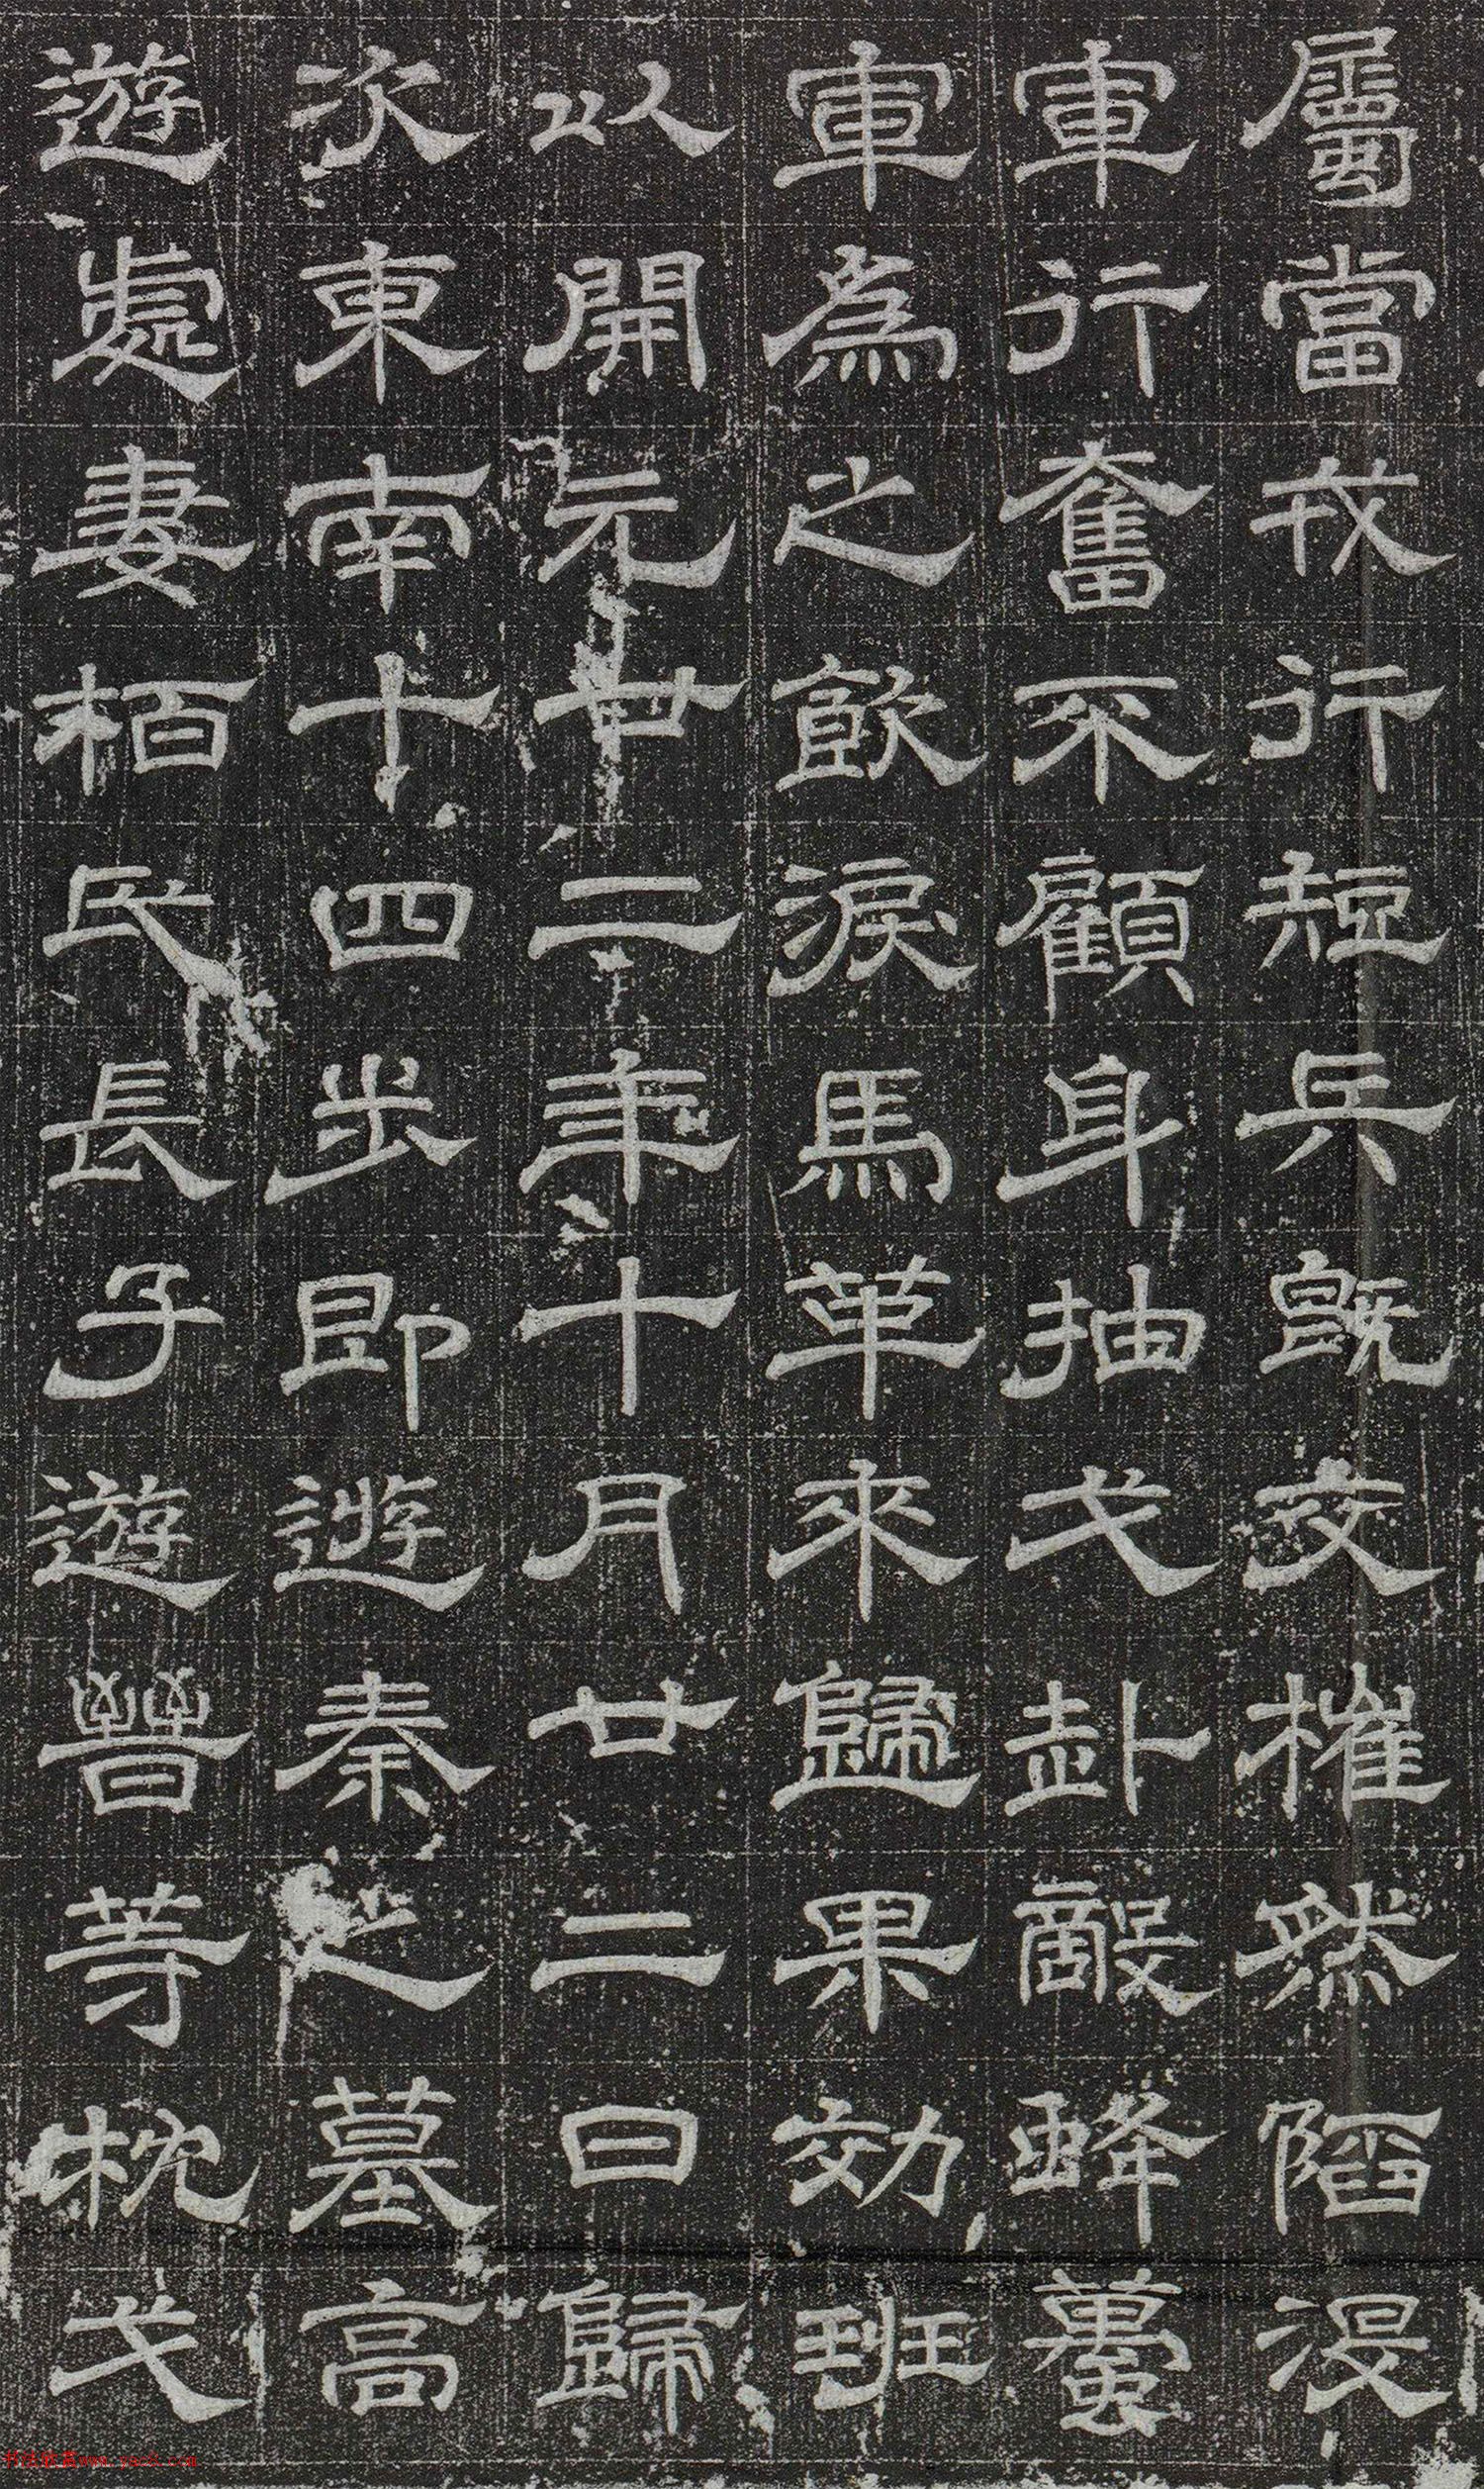 屬當戎行短兵既交摧然陷沒
軍行奮不顧身抽戈赴敵蜂蠆
軍為之飲淚馬革來歸果効班
以開元廿二年十月廿二日歸
次東南十四步即遊秦之墓高
遊處妻栢氏長子遊晉等枕戈
书法欣赏www.yac8.com